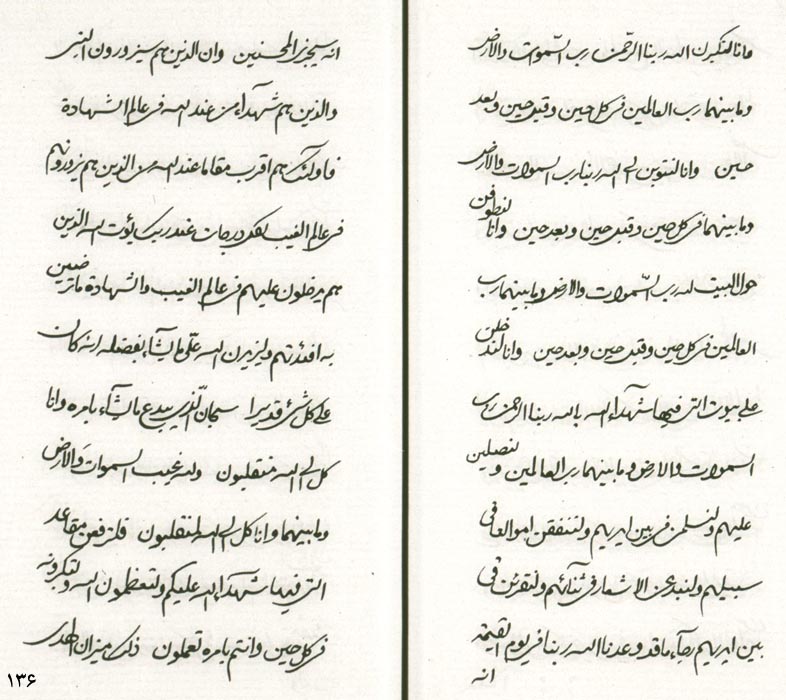 وانا لنكبرن الله ربنا الرحمن رب السموات والارض
وما بينهما رب العالمين في كل حين وقبل حين وبعد
حين وانا لنتوبن الى الله ربنا رب السموات والارض
وما بينهما في كل حين وقبل حين وبعد حين وانا لنطوفن
حول البيت لله رب السموات والارض وما بينهما رب
العالمين في كل حين وقبل حين وبعد حين وانا لندخلن
على بيوت التي فيها شهداء الله بالله ربنا الرحمن رب
السموات والارض وما بينهما رب العالمين ولنصلين
عليهم ولنسلمن في بين ايديهم ولننفقن اموالنا في
سبيلهم ولنبدعن الاشعار في ثنائهم ولنقرئن في
بين ايديهم رجاء ما قد وعدنا الله ربنا في يوم القيمة
انه
انه سيجزي المحسنين وان الذين هم سيزورون النبي
والذين هم شهداء من عند الله في عالم الشهادة
فاولئك هم اقرب مقاما عند الله من الذين هم يزورونهم
في عالم الغيب لكل درجات عند ربك يؤت الله الذين
هم يدخلون عليهم في عالم الغيب والشهادة ما ترضين
به افئدتهم وليزيدن الله على ما يشاء بفضله انه كان
على كل شئ قديرا سبحان الذي يبدع ما يشاء بامره وانا
كل الى الله منقلبون ولله غيب السموات والارض
وما بينهما وانا كل الى الله لمنقلبون فلترفعن مقاعد
التي فيها شهداء الله عليكم ولتعظمون الله ولتكبرونه
في كل حين وانتم بامره تعملون ذلك ميزان الهدى
١٣۶